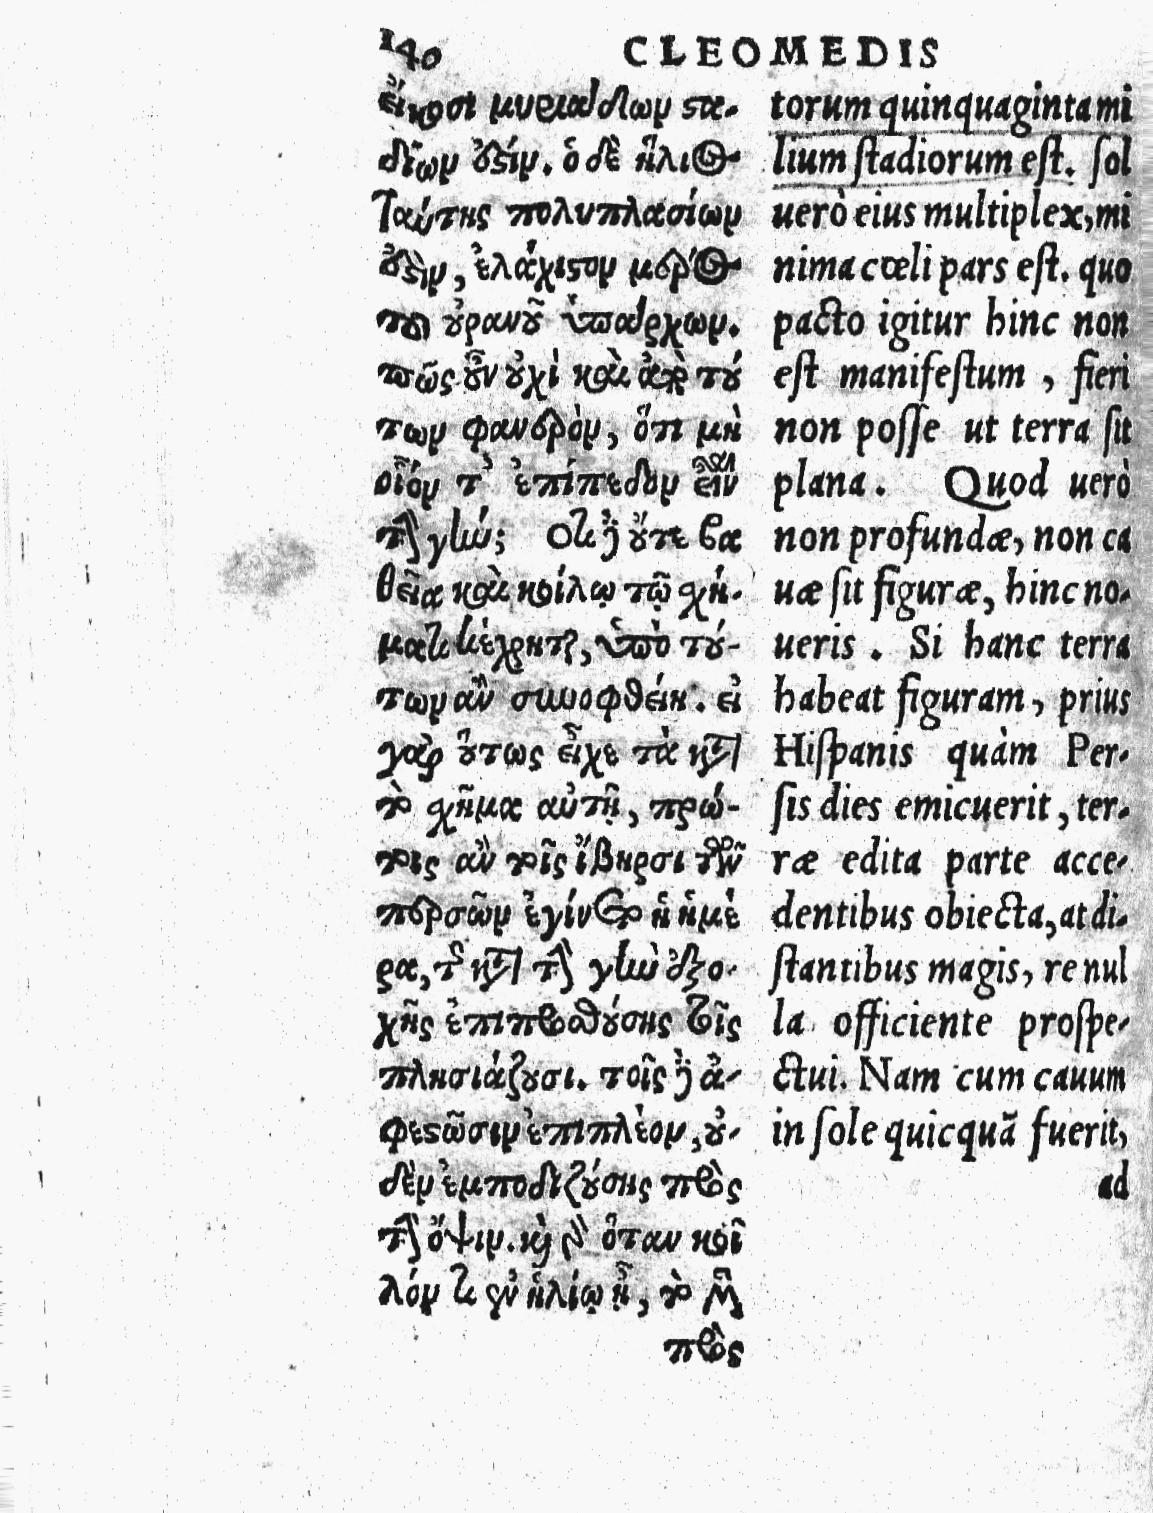 140
CLEOMEDIS
εἴκοσι μυριάδων στα-
δίων ἐστίν. ὁ δὲ ἥλιος
ταύτης πολυπλασίων
ἐστὶν, ἐλάχιστον μέρος
τοῦ οὐρανοῦ ὑπάρχων.
πῶς οὖν οὐχὶ καὶ ἀπὸ τού
των φανερὸν, ὅτι μὴ
οἷόν τ' ἐπίπεδον εἶναι
τὴν γῆν; Ὅτι δὲ οὔτε βα
θεῖα καὶ κοίλῳ τῷ σχή-
ματι κέχρηται, ὑπὸ τού-
των ἂν συνοφθείη. εἰ
γὰρ οὕτως εἶχε τὰ κατὰ
τὸ σχῆμα αὐτῇ, πρώ-
τοις ἂν τοῖς ἴβηρσι τῶν
περσῶν ἐγίνετο ἡ ἡμέ
ρα, τῆς κατὰ τὴν γῆν ἐξο-
χῆς ἐπιπροσθούσης τοῖς
πλησιάζουσι. τοῖς δὲ ἀ-
φεστῶσιν ἐπιπλέον, οὐ-
δὲν ἐμποδιζούσης πρὸς
τὴν ὄψιν. καὶ γὰρ ὅταν κοῖ
λόν τι ἐν ἡλίῳ ᾖ, τὸ μὲν
πρὸς
torum quinquaginta mi
lium stadiorum est. sol
uerò eius multiplex, mi
nima cœli pars est. quo
pacto igitur hinc non
est manifestum, fieri
non posse ut terra sit
plana. Quod uerò
non profundæ, non ca
uæ sit figuræ, hinc no-
ueris. Si hanc terra
habeat figuram, prius
Hispanis quàm Per-
sis dies emicuerit, ter-
ræ edita parte acce-
dentibus obiecta, at di-
stantibus magis, re nul
la officiente prospe-
ctui. Nam cum cauum
in sole quicquã fuerit,
ad